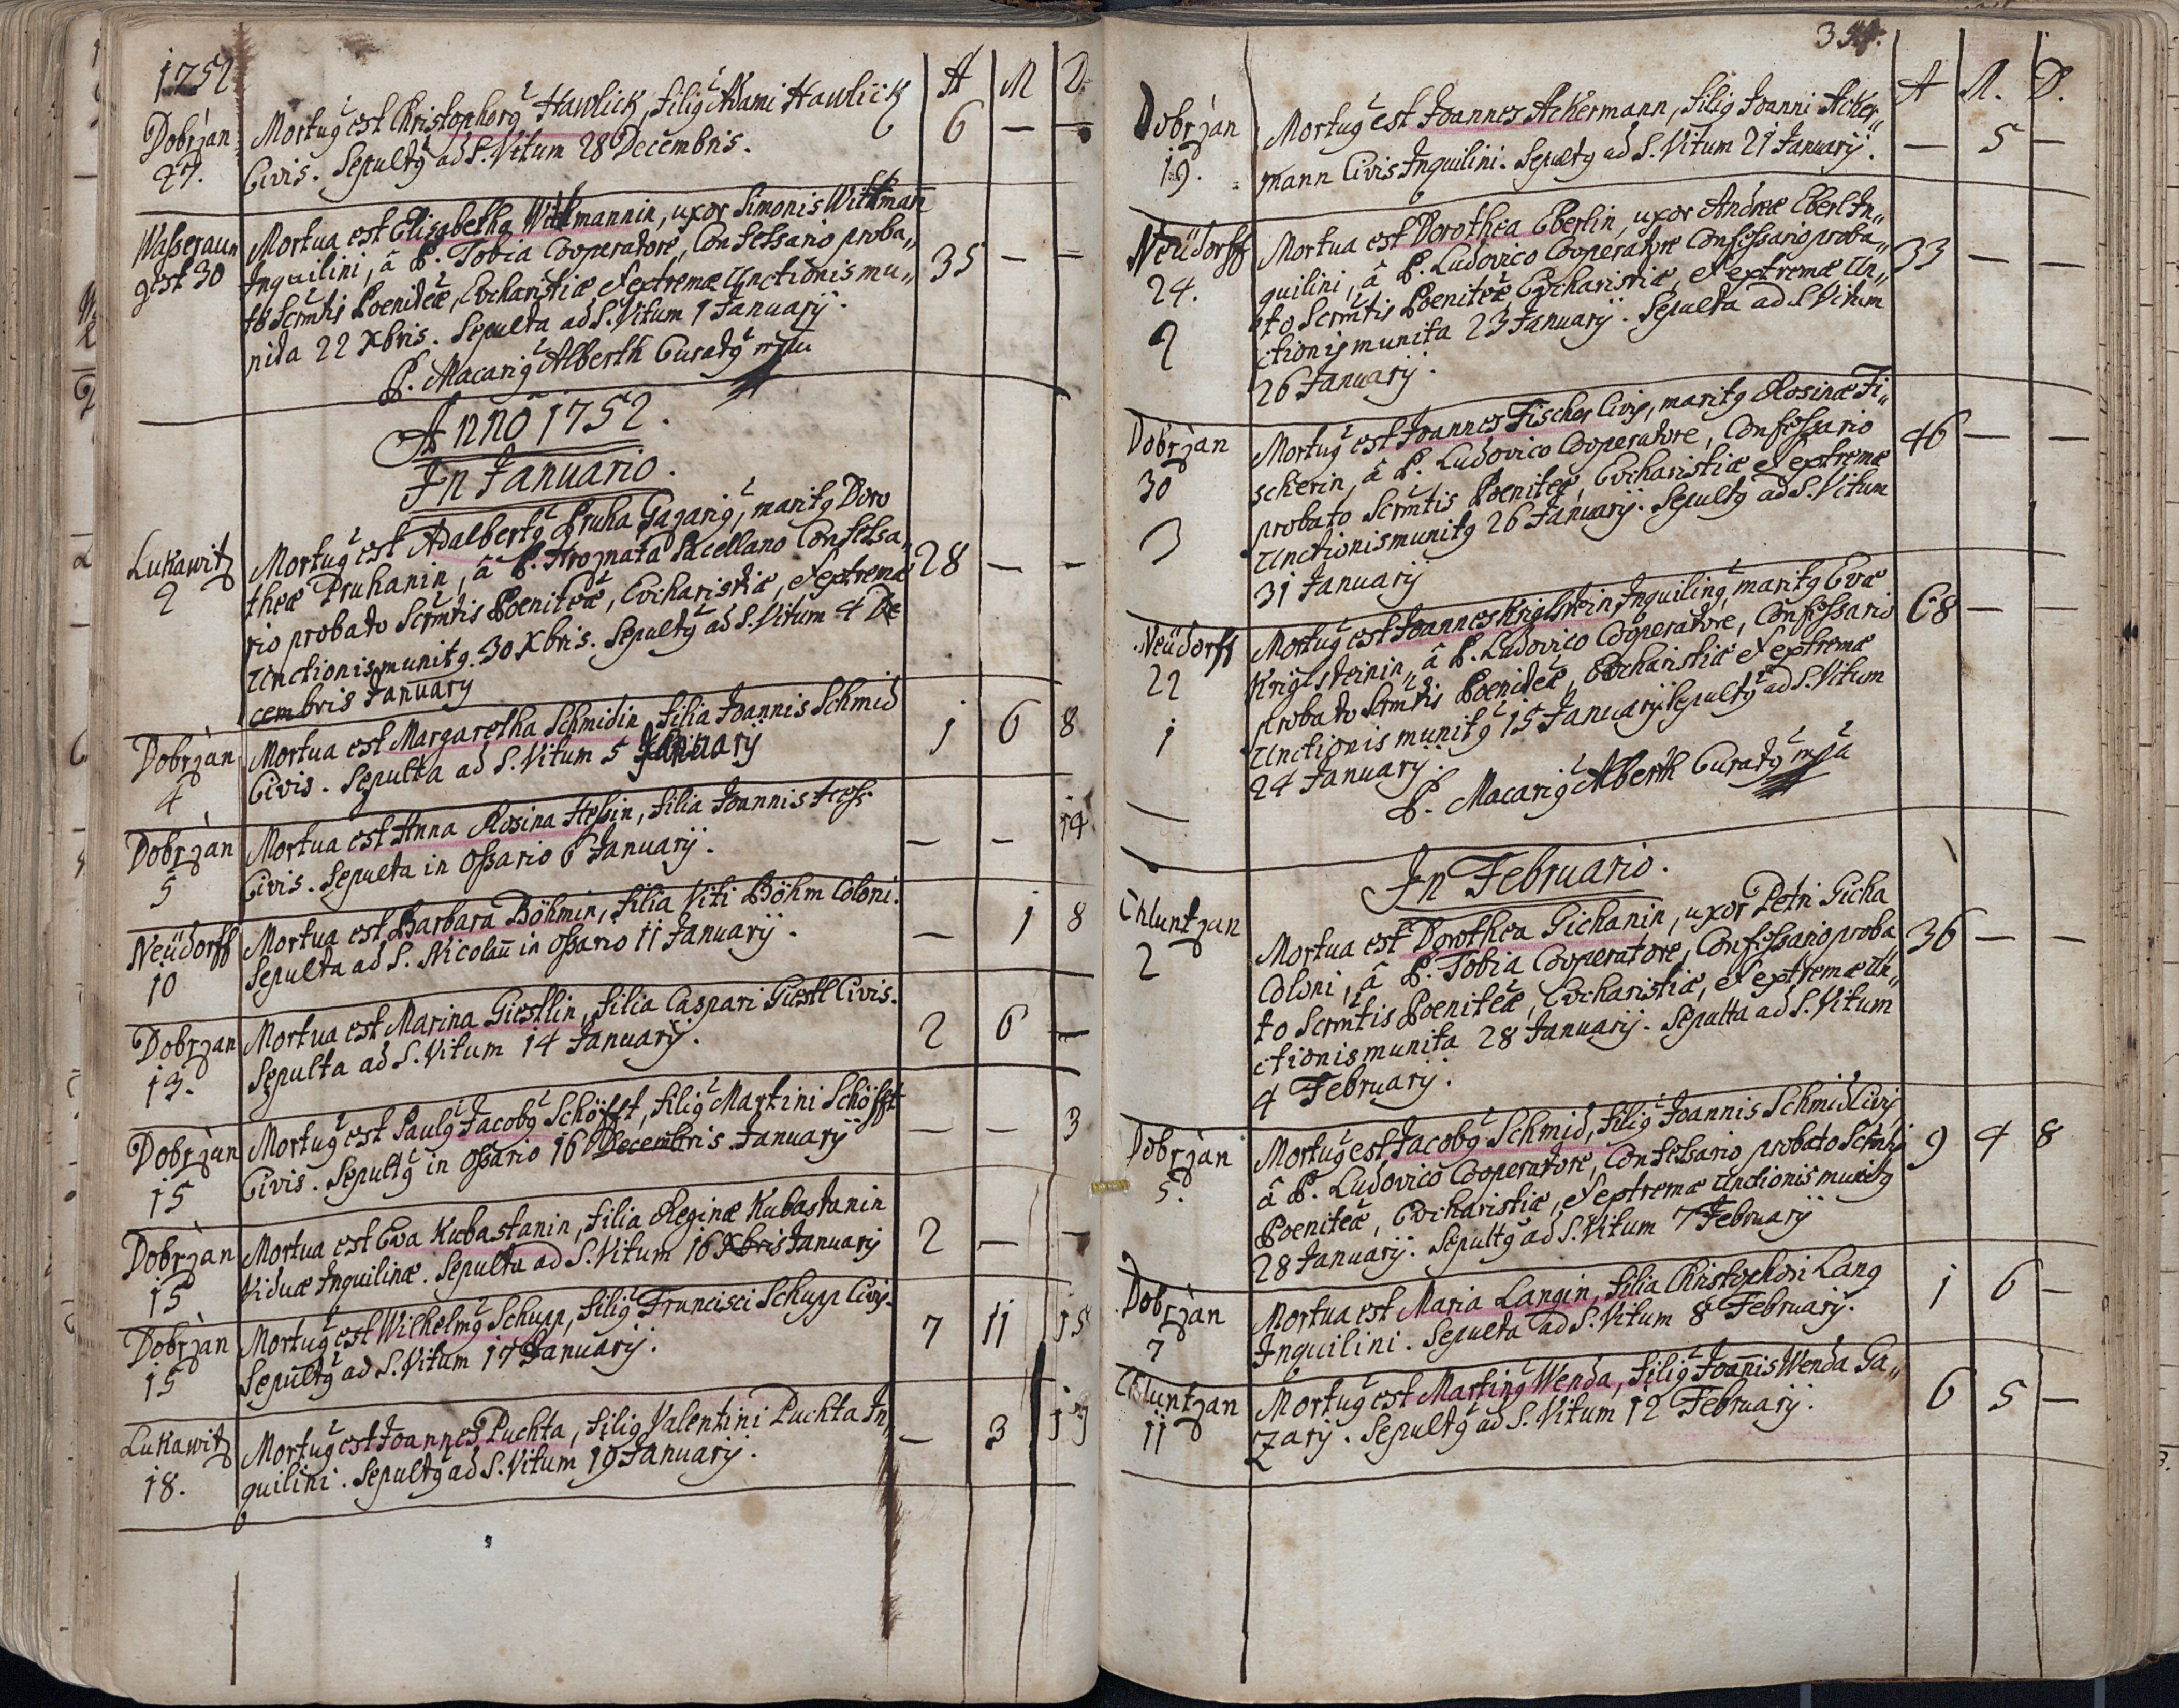 1752
A M D
Dobrzan Mortug est Christophorg Hawlick, filig Adami Hawlick 6 — —
27. Civis. Sepultg ad S. Vitum 28 Decembris.
Wasseraun Mortua est Elisabetha Wittmannin, uxor Simonis Wittman
gest 30 Inquilini, à P. Tobia Cooperatore, Confessario proba„ 35 — —
to Scrmtis Poeniteæ, Eucharistiæ et extremæ Unctionis mu„
nita 22 Xbris. Sepulta ad S. Vitum 1 Januarij.
P. Macarig Alberth Curatg mpu
Anno 1752.
In Januario.
Lukawitz Mortug est Adalbertg Pruha Gazarig, maritg Doro
2 theæ Pruhanin, à P. Hroznata Sacellano Confessa„ 28 — —
rio probato Scrmtis Poeniteæ, Eucharistiæ, et extremæ
Unctionis munitg. 30 Xbris. Sepultg ad S. Vitum 4 De
cembris January
Dobrzan Mortua est Margaretha Schmidin filia Joannis Schmid 1 6 8
4 Civis. Sepulta ad S. Vitum 5 January
Dobrzan Mortua est Anna Rosina Hessin, filia Joannis Hess. — — 14
5 Civis. Sepulta in Ossario 6 Januarij.
Neüdorff Mortua est Barbara Böhmin, filia Viti Böhm Coloni. — 1 8
10 Sepulta ad S. Nicolaū in Ossario 11 Januarij.
Dobrzan Mortua est Marina Giestlin, filia Caspari Giestl Civis. 2 6 —
13. Sepulta ad S. Vitum 14 Januarij.
Dobrzan Mortug est Paulg Jacobg Schöfft, filig Martini Schöfft — — 3
15 Civis. Sepultg in Ossario 16 Decembris Januarij
Dobrzan Mortua est Eva Kubastanin, filia Reginæ Kubastanin 2 — —
15 Viduæ Inquilinæ. Sepulta ad S. Vitum 16 Xbris Januarij
Dobrzan Mortug est Wilhelmg Schupp, filig Francisci Schupp Civis. 7 11 15
15 Sepultg ad S. Vitum 17 Januarij.
Lukawitz Mortug est Joannes Puchta, filig Valentini Puchta In„ — 3
18. quilini. Sepultg ad S. Vitum 19 Januarij.
A M. D.
Dobrzan Mortug est Joannes Ackermann, filig Joanni Acker„ — 5 —
19. mann Civis Inquilini. Sepultg ad S. Vitum 21 Januarij.
Neüdorff Mortua est Dorothea Eberlin, uxor Andreæ Eberl In„
24. quilini, à P. Ludovico Cooperatore Confessario proba„ 33 — —
to Scrmtis Poeniteæ Eucharistiæ, et extremæ Un„
2 ctionis munita 23 Januarij. Sepulta ad S. Vitum
26 Januarij.
Dobrzan Mortug est Joannes Fischer Civis, maritg Rosinæ Fi„ 46 — —
30 scherin, à P. Ludovico Cooperatore, Confessario
probato Scrmtis Poeniteæ, Eucharistiæ et extremæ
3 Unctionis munitg 26 Januarij. Sepultg ad S. Vitum
31 Januarij
Neüdorff Mortug est Joannes Kriglstein Inquiling, maritg Evæ 68 — —
22 Kriglsteinin, à P. Ludovico Cooperatore, Confessario
probato Scrmtis Poeniteæ, Eucharistiæ et extremæ
1 Unctionis munitg 15 Januarij. Sepultg ad S. Vitum
24 January.
P. Macarig Alberth Curatg mpu
In Februario.
Chluntzan Mortua est Dorothea Gichanin, uxor Petri Gicha
2 Coloni, à P. Tobia Cooperatore, Confessario proba 36 — —
to Scrmtis Poeniteæ, Eucharistiæ, et extremæ Un„
ctionis munita 28 Januarij. Sepulta ad S. Vitum
4 Februarij.
Dobrzan Mortug est Jacobg Schmid, filig Joannis Schmid Civis 9 4 8
5. à P. Ludovico Cooperatore, Confessario probato Scrmtis
Poeniteæ, Eucharistiæ, et extremæ Unctionis munitg
28 Januarij. Sepultg ad S. Vitum 7 Februarij
Dobrzan Mortua est Maria Langin, filia Christophori Lang 1 6 —
7 Inquilini. Sepulta ad S. Vitum 8 Februarij.
Chluntzan Mortug est Marting Wenda, filig Joannis Wenda Ga„ 6 5 —
11 zarij. Sepultg ad S. Vitum 12 Februarij.